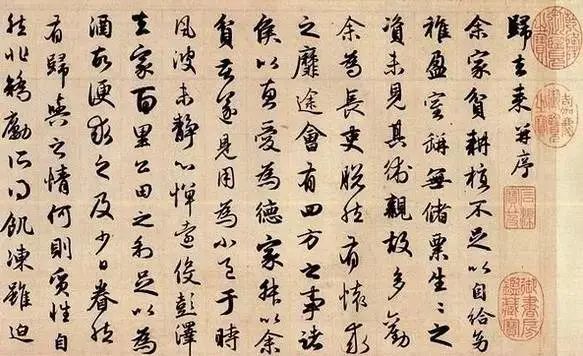 歸去来并序
余家貧耕植不足以自給幼
稚盈室缾無儲粟生〻之
資未見其術親故多勸
余為長吏脫然有懷求
之靡途會有四方之事諸
侯以惠愛為德家叔以余
貧苦遂見用為小邑于時
風波未靜心憚遠役彭澤
去家百里公田之利足以為
酒故便求之及少日眷然
有歸與之情何則質性自
然非矯勵所得飢凍雖迫
嘉慶御覽之寶
石渠寶笈
御書房鑑藏寶